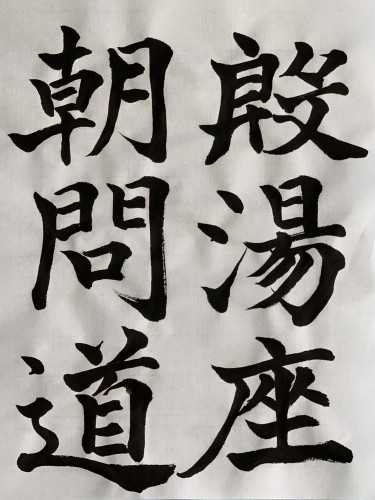 殷湯座
朝問道